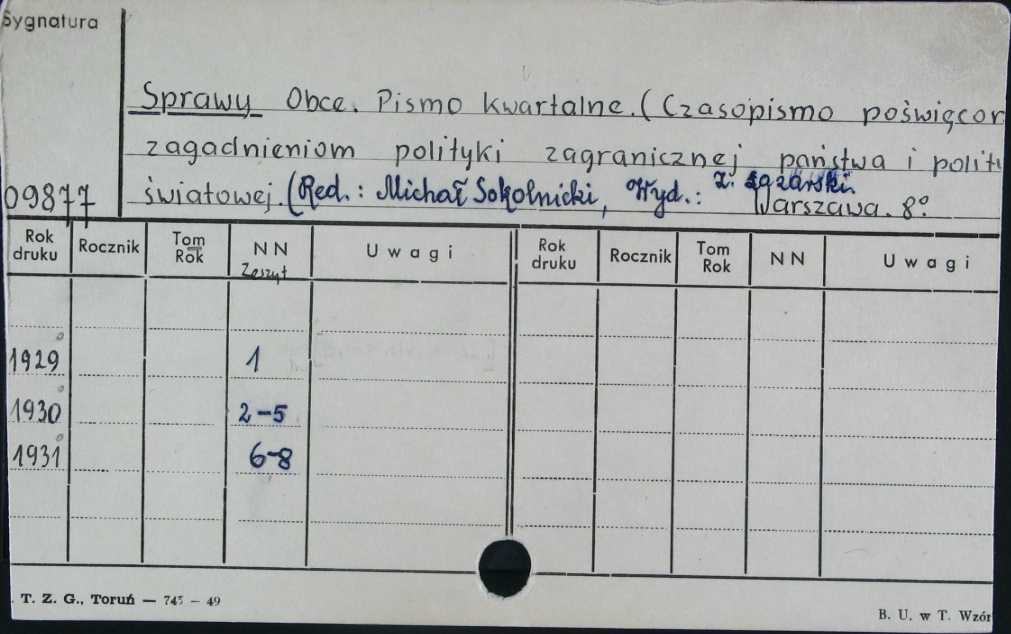 Sygnatura
Sprawy Obce. Pismo kwartalne. (Czasopismo poświęcon
zagadnieniom polityki zagranicznej państwa i polity
światowej. (Red.: Michał Sokolnicki, Wyd.: Z. Łazarski.
Warszawa. 8°
09877
Rok druku Rocznik Tom Rok NN Zeszyt Uwagi Rok druku Rocznik Tom Rok NN Uwagi
1929 1
1930 2-5
1931 6-8
T. Z. G., Toruń — 745 — 49
B. U. w T. Wzór